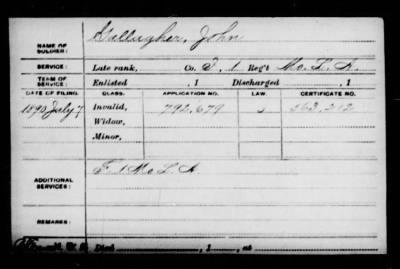 NAME OF SOLDIER: Gallagher, John
SERVICE: Late rank, Co. F, 1 Reg't Mo. L. A.
TERM OF SERVICE: Enlisted , 1 Discharged , 1
DATE OF FILING. CLASS. APPLICATION NO. LAW. CERTIFICATE NO.
1890 July 7 Invalid, 792,679 563,212
Widow,
Minor,
ADDITIONAL SERVICES: F 1 Mo L. A.
REMARKS:
Died , 1 , at